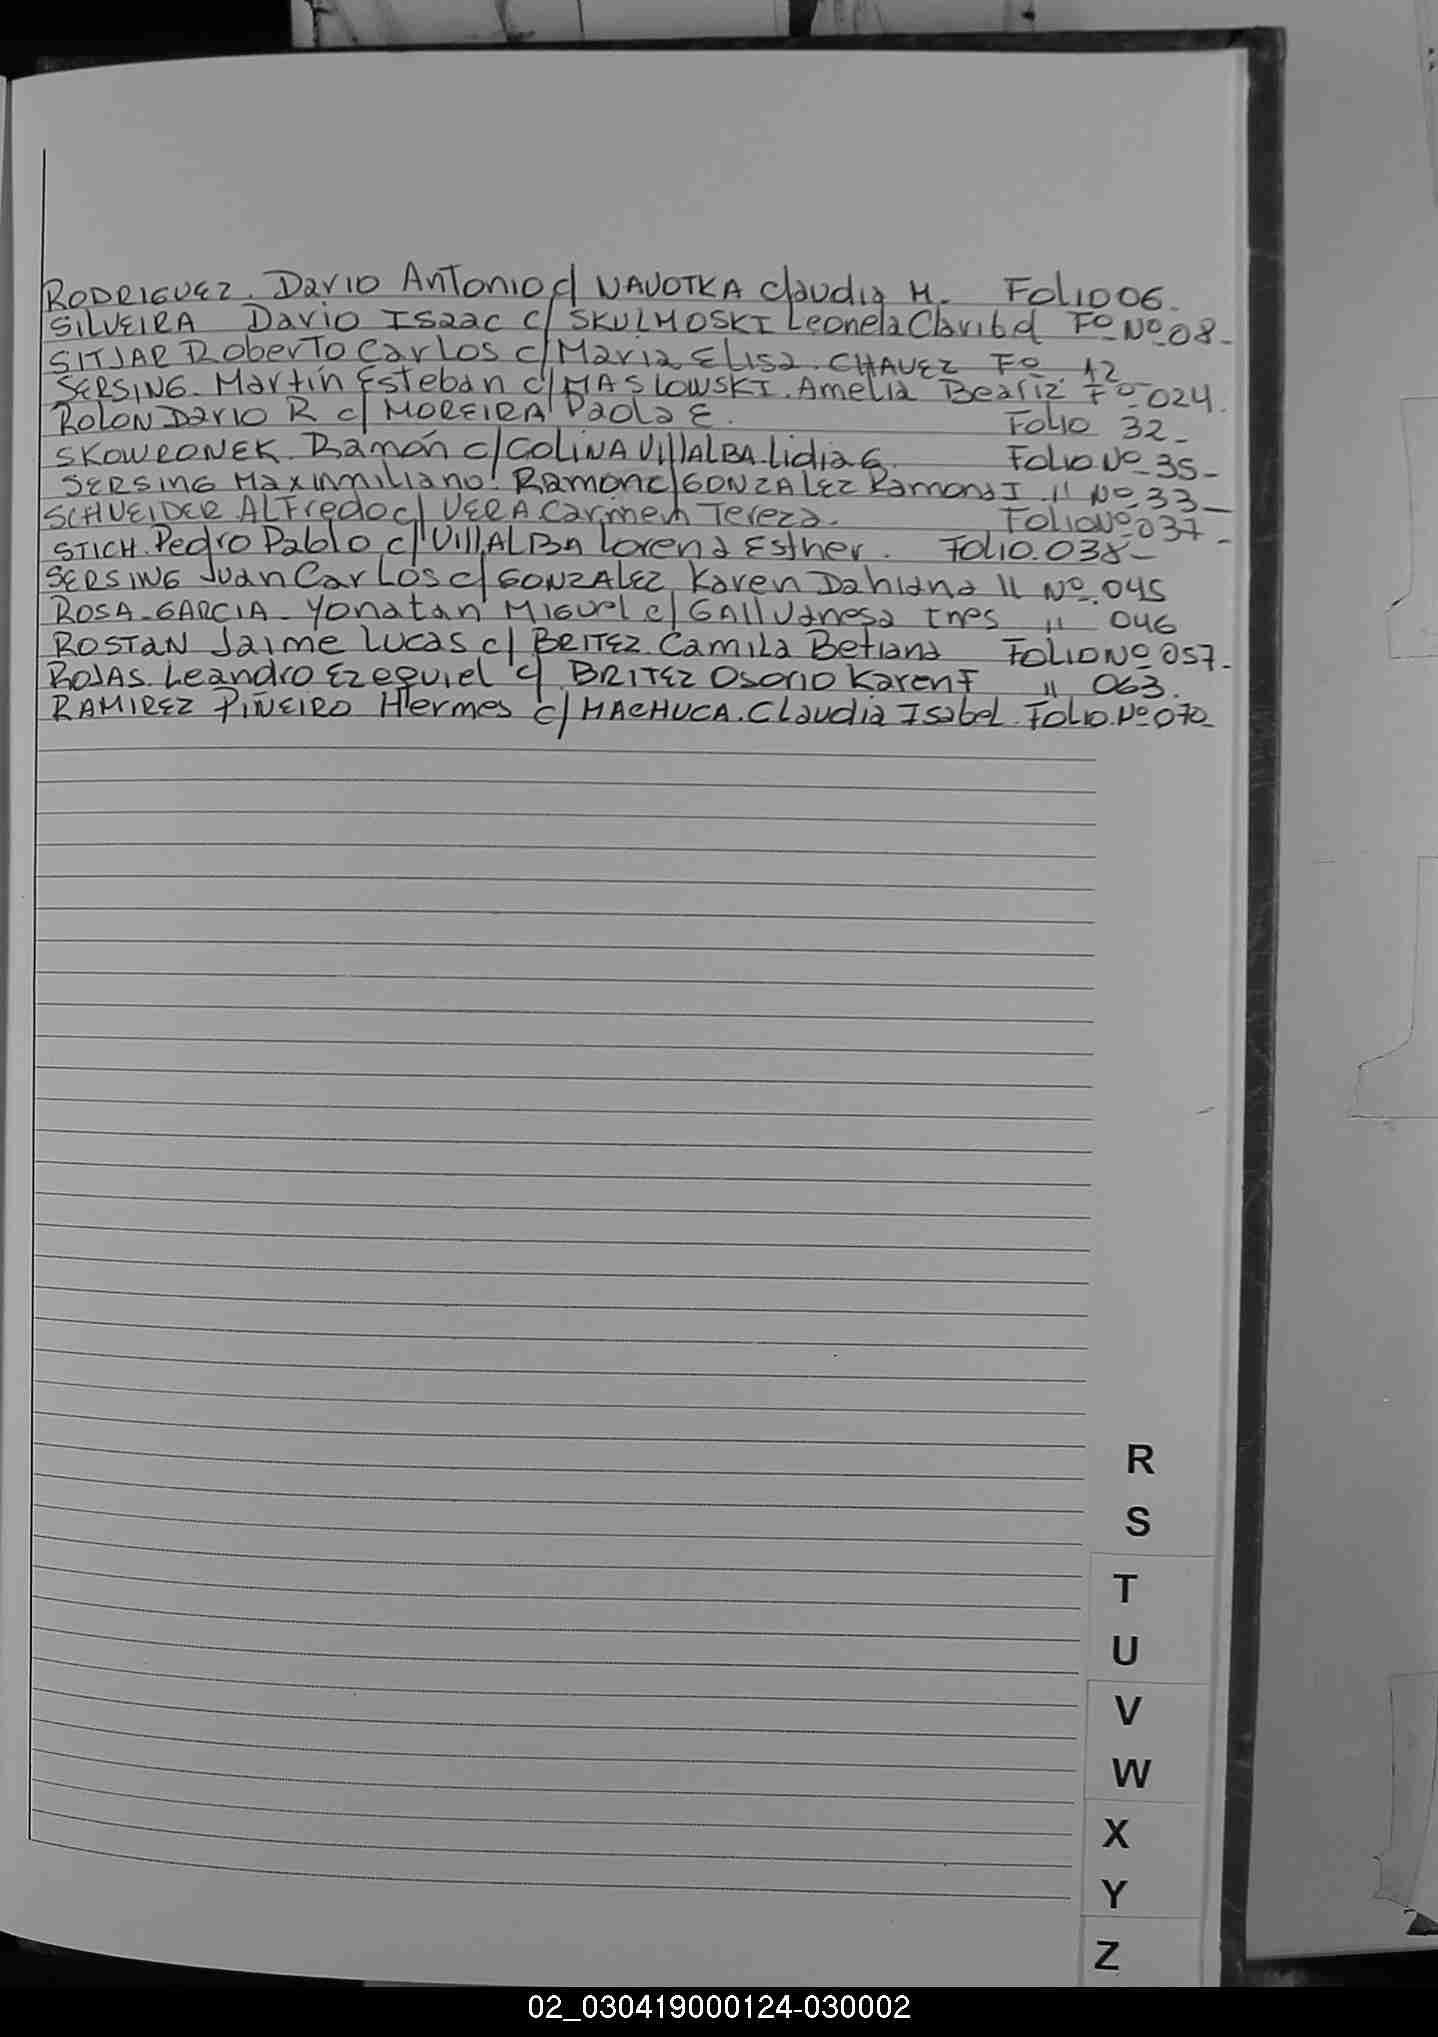 RODRIGUEZ. Dario Antonio c/ NAVOTKA Claudia M. Folio 06.
SILVEIRA Dario Isaac c/ SKULMOSKI Leonela Claribel Fº Nº 08.
SITJAR Roberto Carlos c/ Maria Elisa. CHAVEZ Fº 12
SERSING. Martín Esteban c/ MASLOWSKI. Amelia Beariz Fº 024.
ROLON Dario R c/ MOREIRA Paola E. Folio 32-
SKOWRONEK Ramón c/ COLINA VILLALBA. Lidia G. Folio Nº 35-
SERSING Maxinmiliano. Ramon c/ GONZALEZ Ramona I. " Nº 33-
SCHNEIDER ALFredo c/ VERA Carmen Tereza. Folio Nº 037-
STICH. Pedro Pablo c/ VILLALBA Lorena Esther. Folio. 038-
SERSING Juan Carlos c/ GONZALEZ Karen Dahiana " Nº. 045
ROSA-GARCIA- Yonatan Miguel c/ GALL Vanesa Ines " 046
ROSTAN Jaime Lucas c/ BRITEZ Camila Betiana FOLIO Nº 057-
ROJAS. Leandro Ezequiel c/ BRITEZ Osorio Karen F " 063.
RAMIREZ PIÑEIRO Hermes c/ MACHUCA. Claudia Isabel. Folio. Nº 070-
R
S
T
U
V
W
X
Y
Z
02_030419000124-030002